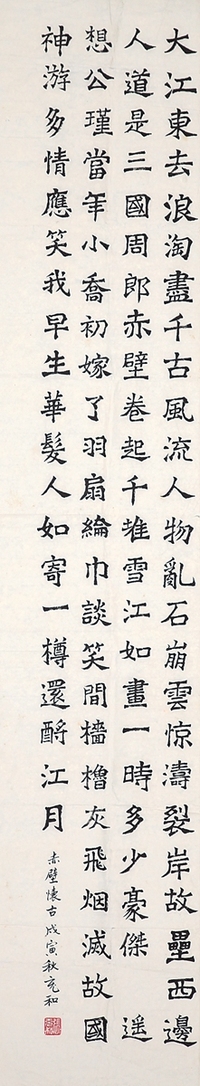 大江東去浪淘盡千古風流人物亂石崩雲惊濤裂岸故壘西邊
人道是三國周郎赤壁卷起千堆雪江如畫一時多少豪傑遥
想公瑾當年小喬初嫁了羽扇綸巾談笑間檣櫓灰飛烟滅故國
神游多情應笑我早生華髮人如寄一樽還酹江月
赤壁懷古戊寅秋充和